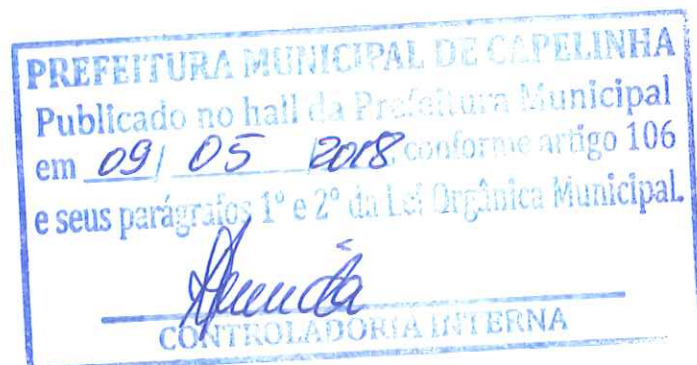 PREFEITURA MUNICIPAL DE CAPELINHA
Publicado no hall da Prefeitura Municipal
em 09/ 05 /2018, conforme artigo 106
e seus parágrafos 1º e 2º da Lei Orgânica Municipal.
CONTROLADORIA INTERNA